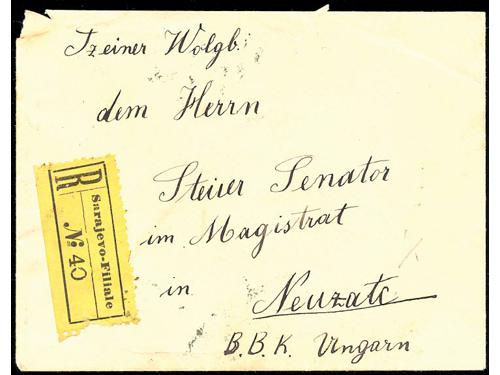 Szeiner Wolgb.
dem Herrn
Steiler Senator
im Magistrat
in Neuzatz
B.B.K. Ungarn
R
Sarajevo-Filiale
№ 40